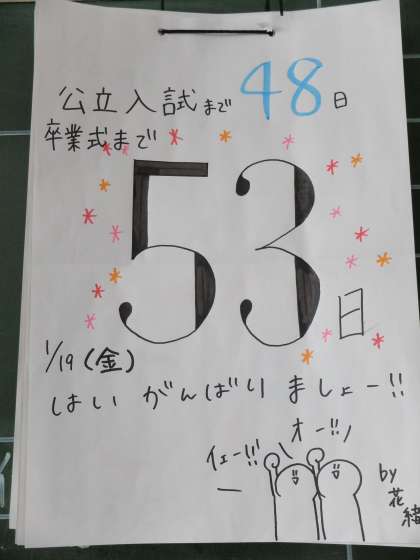 公立入試まで 48日
卒業式まで
53日
1/19(金)
はい がんばり ましょー!!
オー!!ノ
イェー!!!
by
花緒